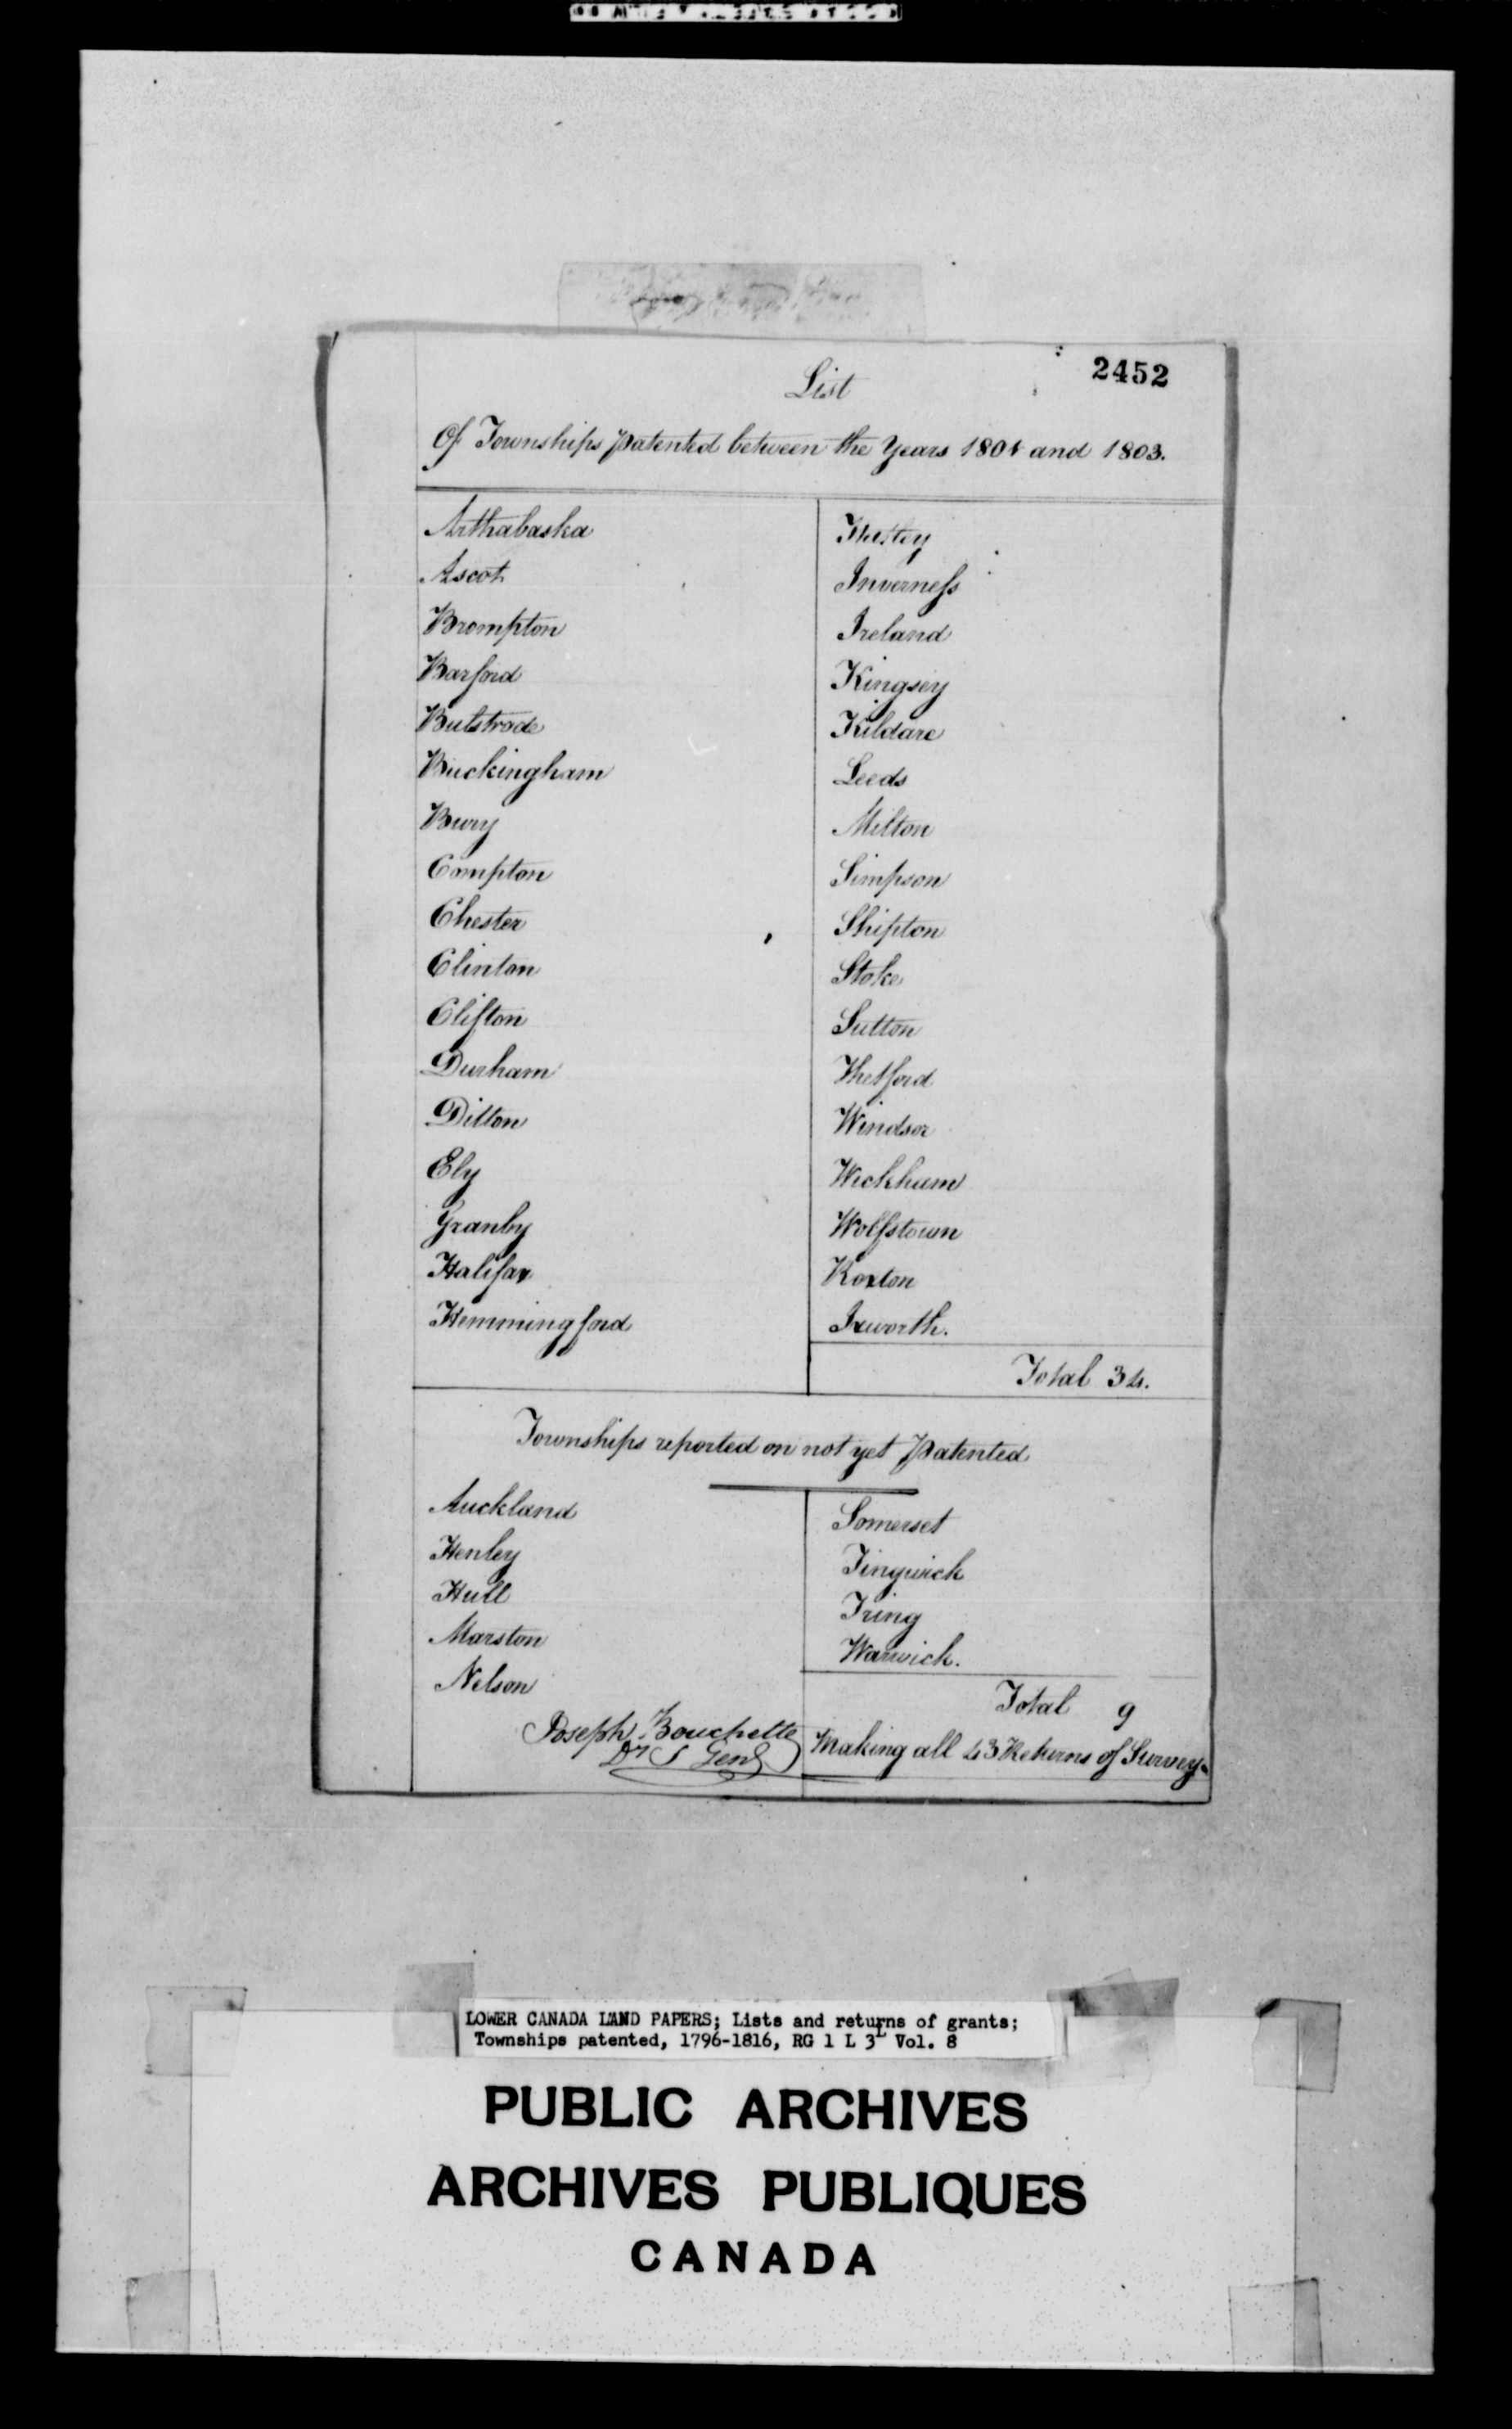 2452
List
Of Townships Patented between the Years 1801 and 1803.
Arthabaska
Ascot
Brompton
Barford
Bulstrode
Buckingham
Bury
Compton
Chester
Clinton
Clifton
Durham
Ditton
Ely
Granby
Halifax
Hemmingford
Inverness
Ireland
Kingsey
Kildare
Leeds
Milton
Simpson
Shipton
Stoke
Sutton
Thetford
Windsor
Wickham
Wolfstown
Roxton
Ixworth.
Total 34.
Townships reported on not yet Patented
Auckland
Henley
Hull
Marston
Nelson
Somerset
Tingwick
Tring
Warwick.
Total 9
Making all 43 Returns of Survey.
Joseph Bouchette
Dy S Genl
LOWER CANADA LAND PAPERS; Lists and returns of grants;
Townships patented, 1796-1816, RG 1 L 3L Vol. 8
PUBLIC ARCHIVES
ARCHIVES PUBLIQUES
CANADA